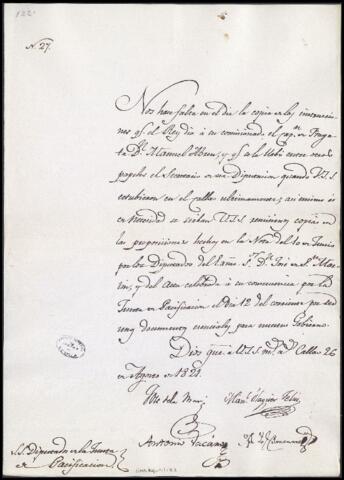 122
N. 27.
Nos hace falta en el dia la copia de las instruccio-
nes qe. el Rey dió á su comisionado el Capn. de Fraga-
ta Dn. Manuel Abreu, y qe. se
papeles el Secretario de su Diputacion quando V.S.S.
estubieron en el Callao ultimamente; asi mismo es
de necesidad se sirban V.S.S. remitirnos copias de
las proposiciones hechas en la Nota del 10 de Junio
por los Diputados del Exmo. Sr. Dn. José de Sn. Mar-
tin, y del acta celebrada á su consecuencia por la
Junta de Pacificacion el dia 12 del corriente por ser
documentos esenciales para nuestro Gobierno.
Dios gue. á V.S.S. ms. as. Callao 26
de Agosto de 1821.
Manl. Xavier Feliu
Antonio Vacaro
S.S. Diputados de la Junta
de Pacificacion